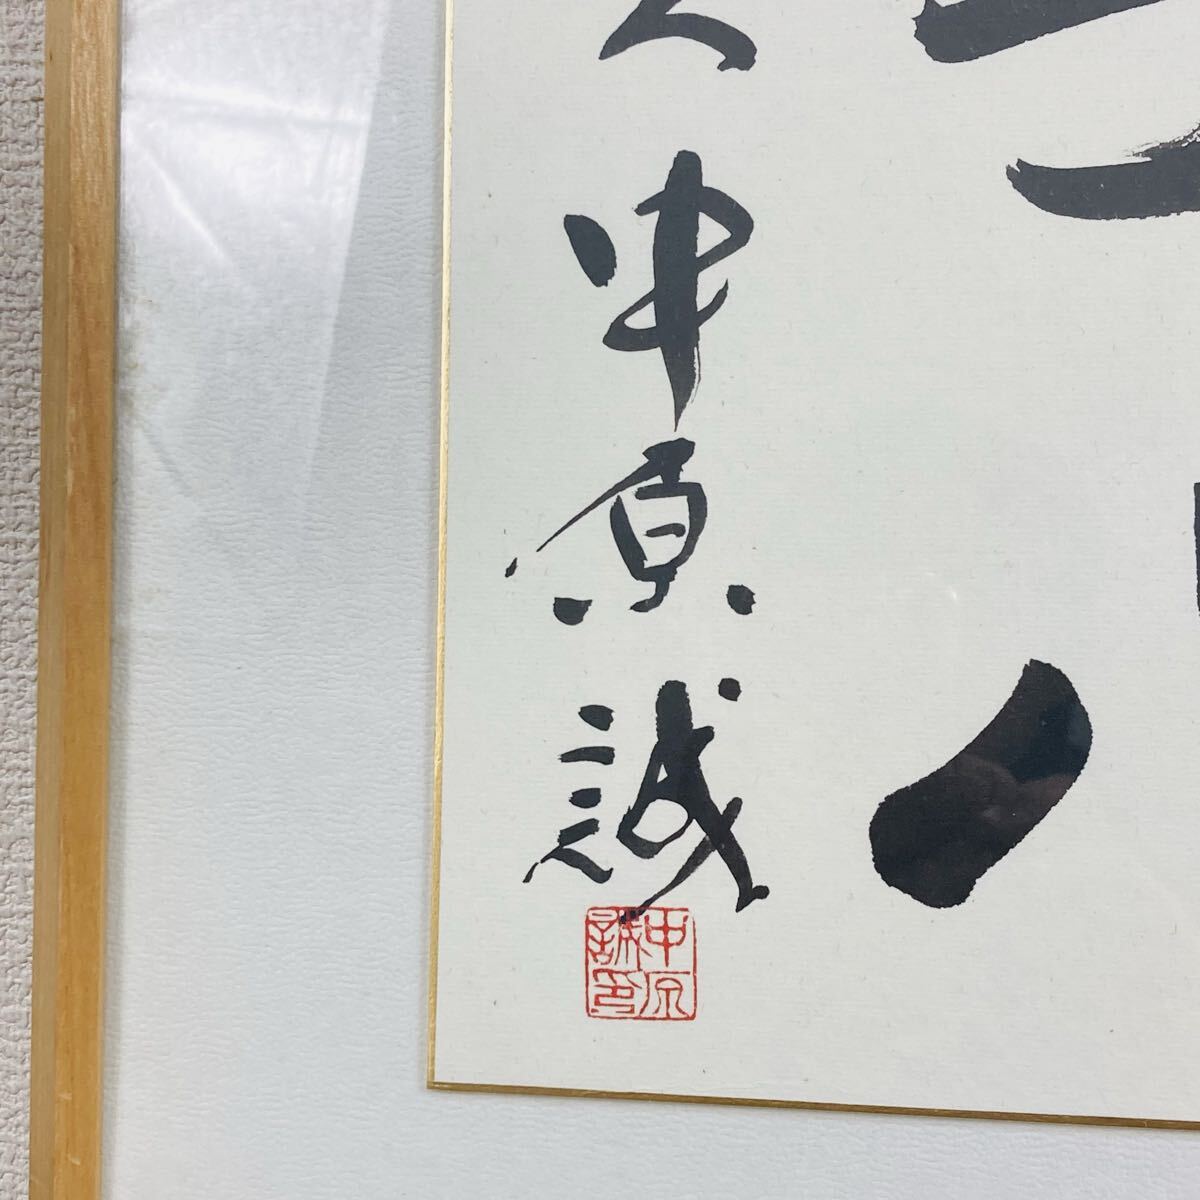 人中原誠
中原
誠印